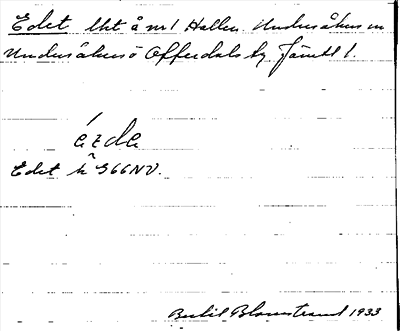 Edet lht å nr 1 Hallen. Undersåkers sn
Undersåkers o Offerdals tg. Jämtl l.
ézde
Edet h 366 NV.
Bertil Blomstrand 1933